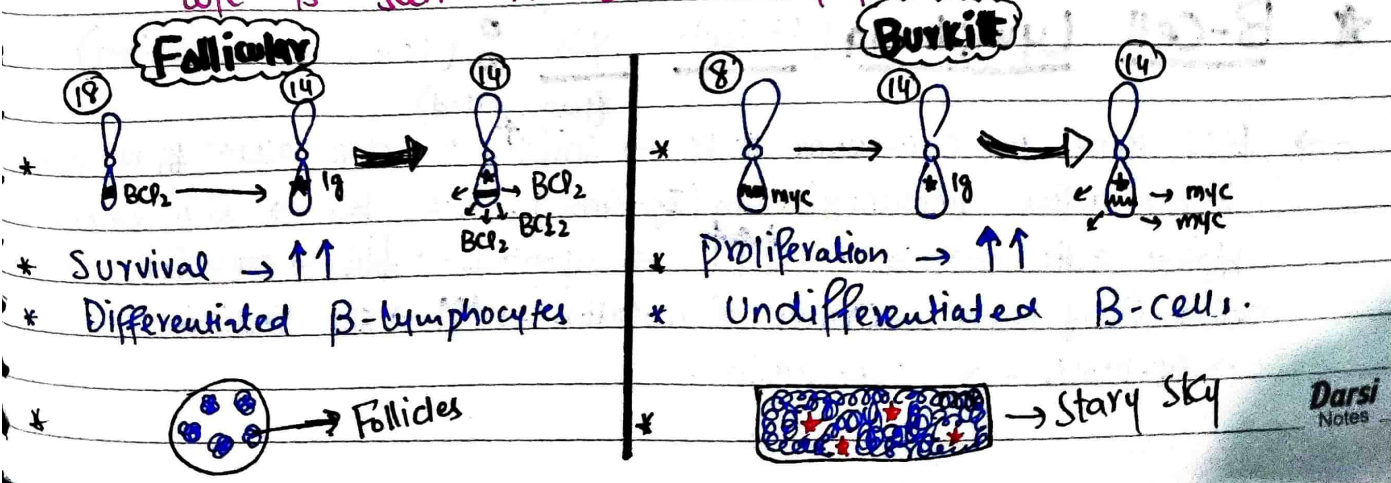 is
Follicular
18
14
14
* BCl2 → * Ig → BCl2
BCl2 BCl2
* Survival → ↑↑
* Differentiated B-Lymphocytes
* → Follicles
Burkitt
8
14
14
* myc → * Ig → myc
→ myc
* Proliferation → ↑↑
* Undifferentiated B-cells.
* → Stary Sky
Darsi
Notes